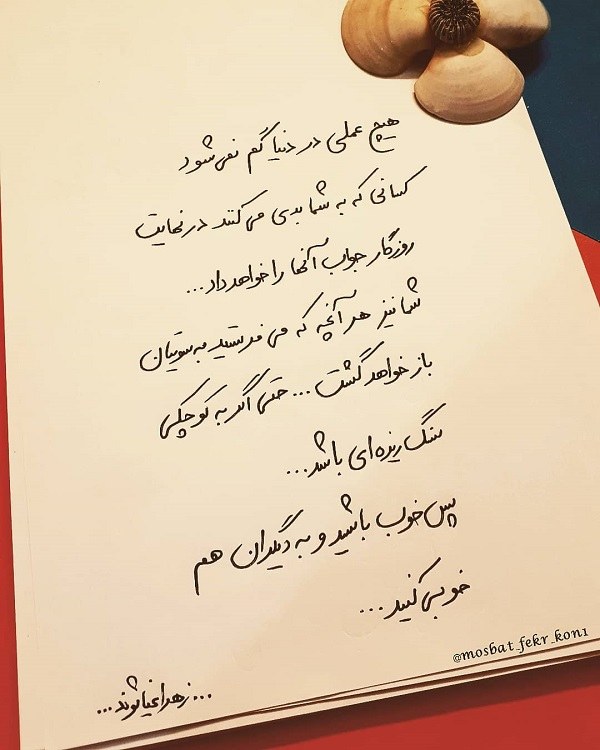 هیچ عملی در دنیا گم نمی‌شود
کسانی که به شما بدی می‌کنند در نهایت
روزگار جواب آنها را خواهد داد...
شما نیز هر آنچه که می‌فرستید به سویتان
باز خواهد گشت... حتی اگر به کوچکی
سنگ ریزه‌ای باشد...
پس خوب باشید و به دیگران هم
خوبی کنید...
@mosbat_fekr_kon1
...زهرا غیاثوند...